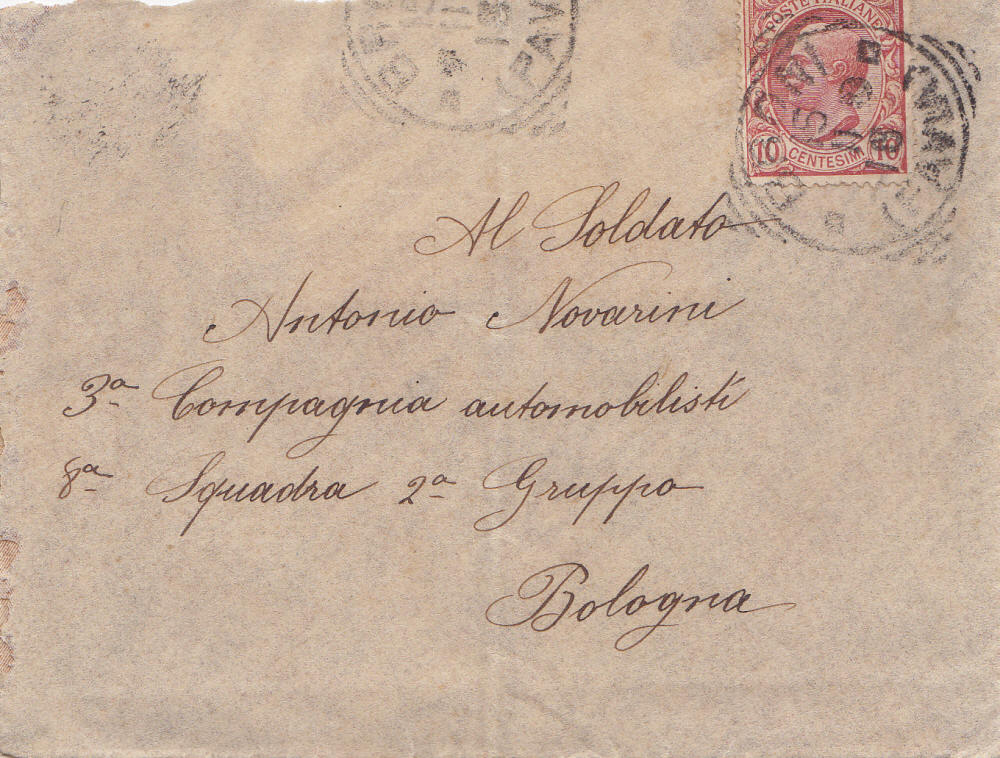 POSTE ITALIANE
10 CENTESIMI 10
(PAV
Al Soldato
Antonio Novarini
3ª Compagnia automobilisti
8ª Squadra 2ª Gruppo
Bologna